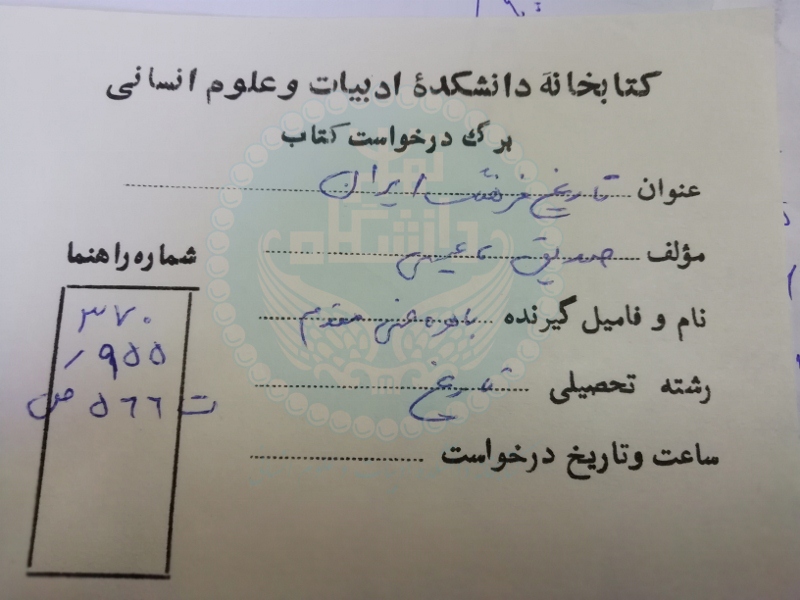 کتابخانهٔ دانشکدهٔ ادبیات و علوم انسانی
برگ درخواست کتاب
عنوان تاریخ فرهنگ ایران
مؤلف صدیق، عیسی
نام و فامیل گیرنده مقدم
رشته تحصیلی تاریخ
ساعت و تاریخ درخواست
شماره راهنما
۳۷۰
/۹۵۵
ت ۵۶۶ ص
دانشگاه